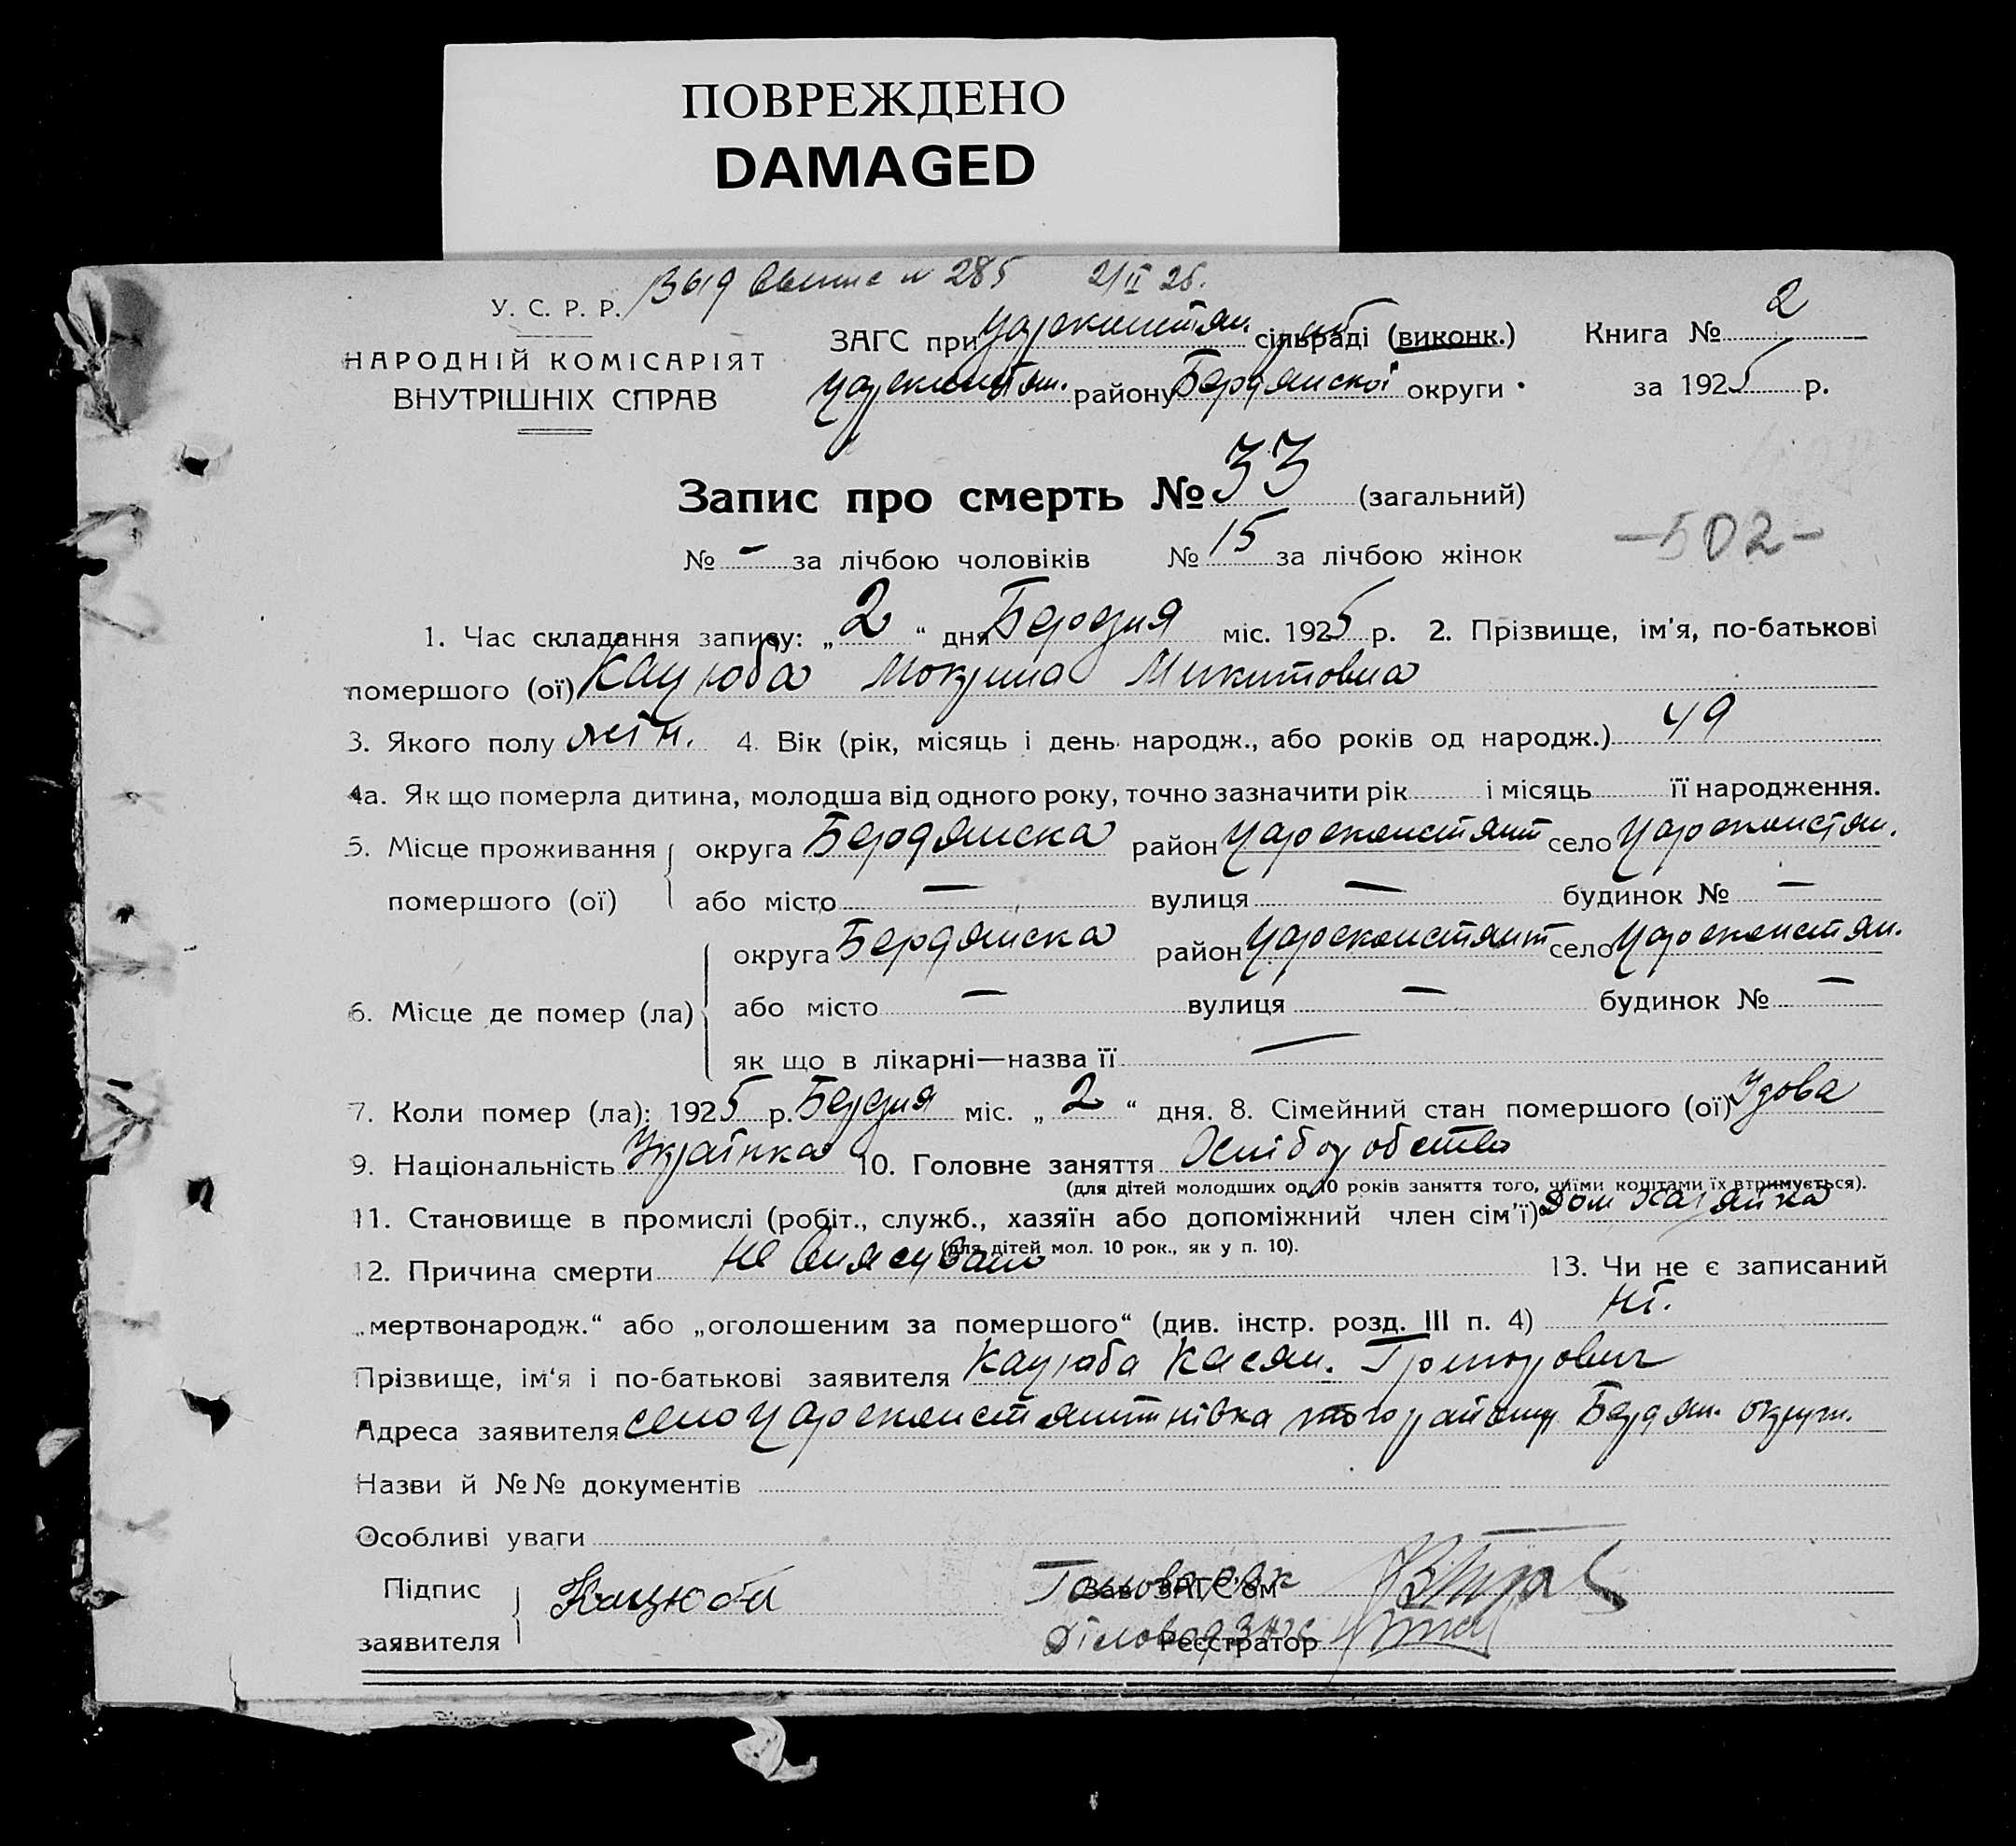 ПОВРЕЖДЕНО
DAMAGED
№ 285 2/II 25.
У. С. Р. Р.
НАРОДНІЙ КОМІСАРІЯТ
ВНУТРІШНІХ СПРАВ
ЗАГС при Цареконстян. сільраді (виконк.)
Цареконстян. району Бердянскої округи
Книга № 2
за 1925 р.
Запис про смерть № 33 (загальний)
№ – за лічбою чоловіків № 15 за лічбою жінок
–502–
1. Час складання запису: „2“ дня Березня міс. 1925 р. 2. Прізвище, ім'я, по-батькові
помершого (ої) Кацюба Мокрина Микитовна
3. Якого полу жін. 4. Вік (рік, місяць і день народж., або років од народж.) 49
4а. Як що померла дитина, молодша від одного року, точно зазначити рік і місяць її народження.
5. Місце проживання помершого (ої) округа Бердянска район Цареконстянт село Цареконстян.
або місто — вулиця — будинок № —
6. Місце де помер (ла) округа Бердянска район Цареконстянт село Цареконстян.
або місто — вулиця — будинок № —
як що в лікарні—назва її —
7. Коли помер (ла): 1925 р. Березня міс. „2“ дня. 8. Сімейний стан помершого (ої) Удова
9. Національність Українка 10. Головне заняття Хліборобство
(для дітей молодших од 10 років заняття того, чиїми коштами їх втримується).
11. Становище в промислі (робіт., служб., хазяїн або допоміжний член сім'ї) дом хазяйка
(для дітей мол. 10 рок., як у п. 10).
12. Причина смерти не виясувано 13. Чи не є записаний
„мертвонародж.“ або „оголошеним за помершого“ (див. інстр. розд. III п. 4) ні.
Прізвище, ім'я і по-батькові заявителя Кацюба Касян. Григорович
Адреса заявителя село Цареконстянтинівка того району Бердян. округи.
Назви й №№ документів
Особливі уваги
Підпис заявителя Кацюба
Голова рвк
Зав. ЗАГС'ом
діловод ЗАГС
Реєстратор